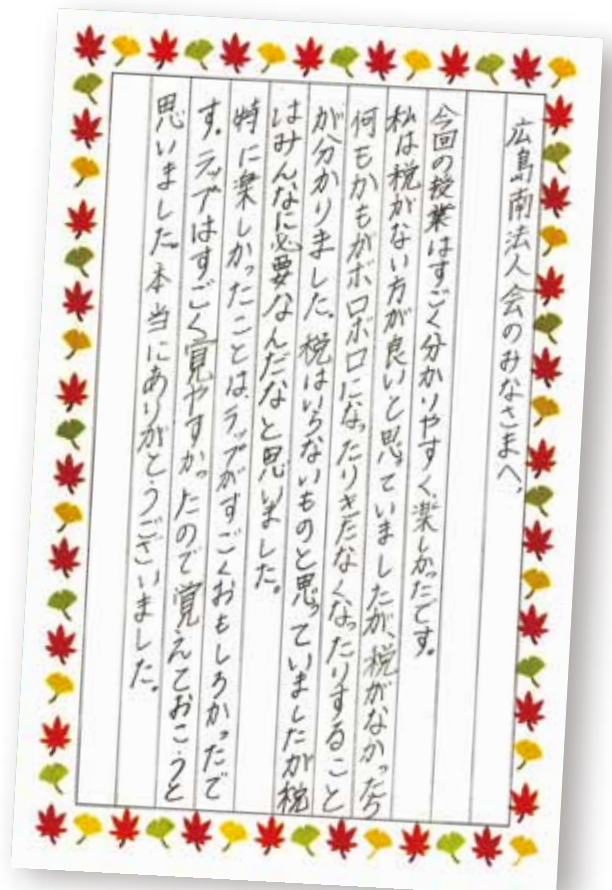 広島南法人会のみなさまへ、
今回の授業はすごく分かりやすく、楽しかたです。
私は税がない方が良いと思っていましたが、税がなかったら
何もかもがボロボロになったりきたなくなったりすること
が分かりました。税はいらないものと思っていましたが税
はみんなに必要なんだなと思いました。
特に楽しかったことは、ラップがすごくおもしろかったで
す。ラップはすごく覚やすかったので覚えておこうと
思いました。本当にありがとうございました。